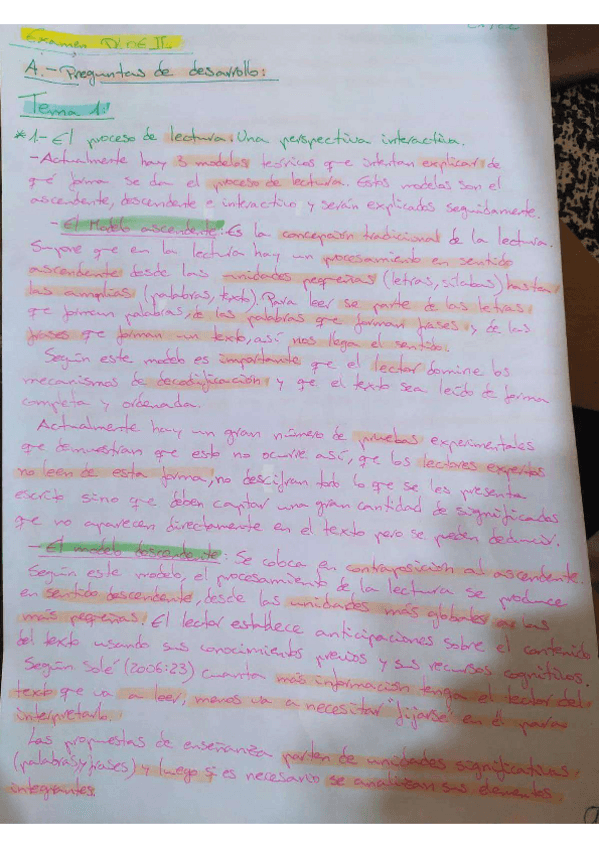 Examen DLOE II
A.- Preguntas de desarrollo:
Tema 1:
*1- El proceso de lectura. Una perspectiva interactiva.
- Actualmente hay 3 modelos teóricos que intentan explicar de
qué forma se da el proceso de lectura. Estos modelos son el
ascendente, descendente e interactivo y serán explicados seguidamente.
- El Modelo ascendente: Es la concepción tradicional de la lectura.
Supone que en la lectura hay un procesamiento en sentido
ascendente desde las unidades pequeñas (letras, sílabas) hasta
las amplias (palabras, texto). Para leer se parte de las letras
que forman palabras, de las palabras que forman frases y de las
frases que forman un texto, así nos llega el sentido.
Según este modelo es importante que el lector domine los
mecanismos de decodificación y que el texto sea leído de forma
completa y ordenada.
Actualmente hay un gran número de pruebas experimentales
que demuestran que esto no ocurre así, que los lectores expertos
no leen de esta forma, no descifran todo lo que se les presenta
escrito sino que deben captar una gran cantidad de significados
que no aparecen directamente en el texto pero se pueden deducir.
- El modelo descendente: Se coloca en contraposición al ascendente.
Según este modelo, el procesamiento de la lectura se produce
en sentido descendente, desde las unidades más globales a las
más pequeñas. El lector establece anticipaciones sobre el contenido
del texto usando sus conocimientos previos y sus recursos cognitivos.
Según Solé (2006:23) cuanta más información tenga el lector del
texto que va a leer, menos va a necesitar "fijarse" en él para
interpretarlo.
Las propuestas de enseñanza parten de unidades significativas
(palabras y frases) y luego si es necesario se analizan sus elementos
integrantes.